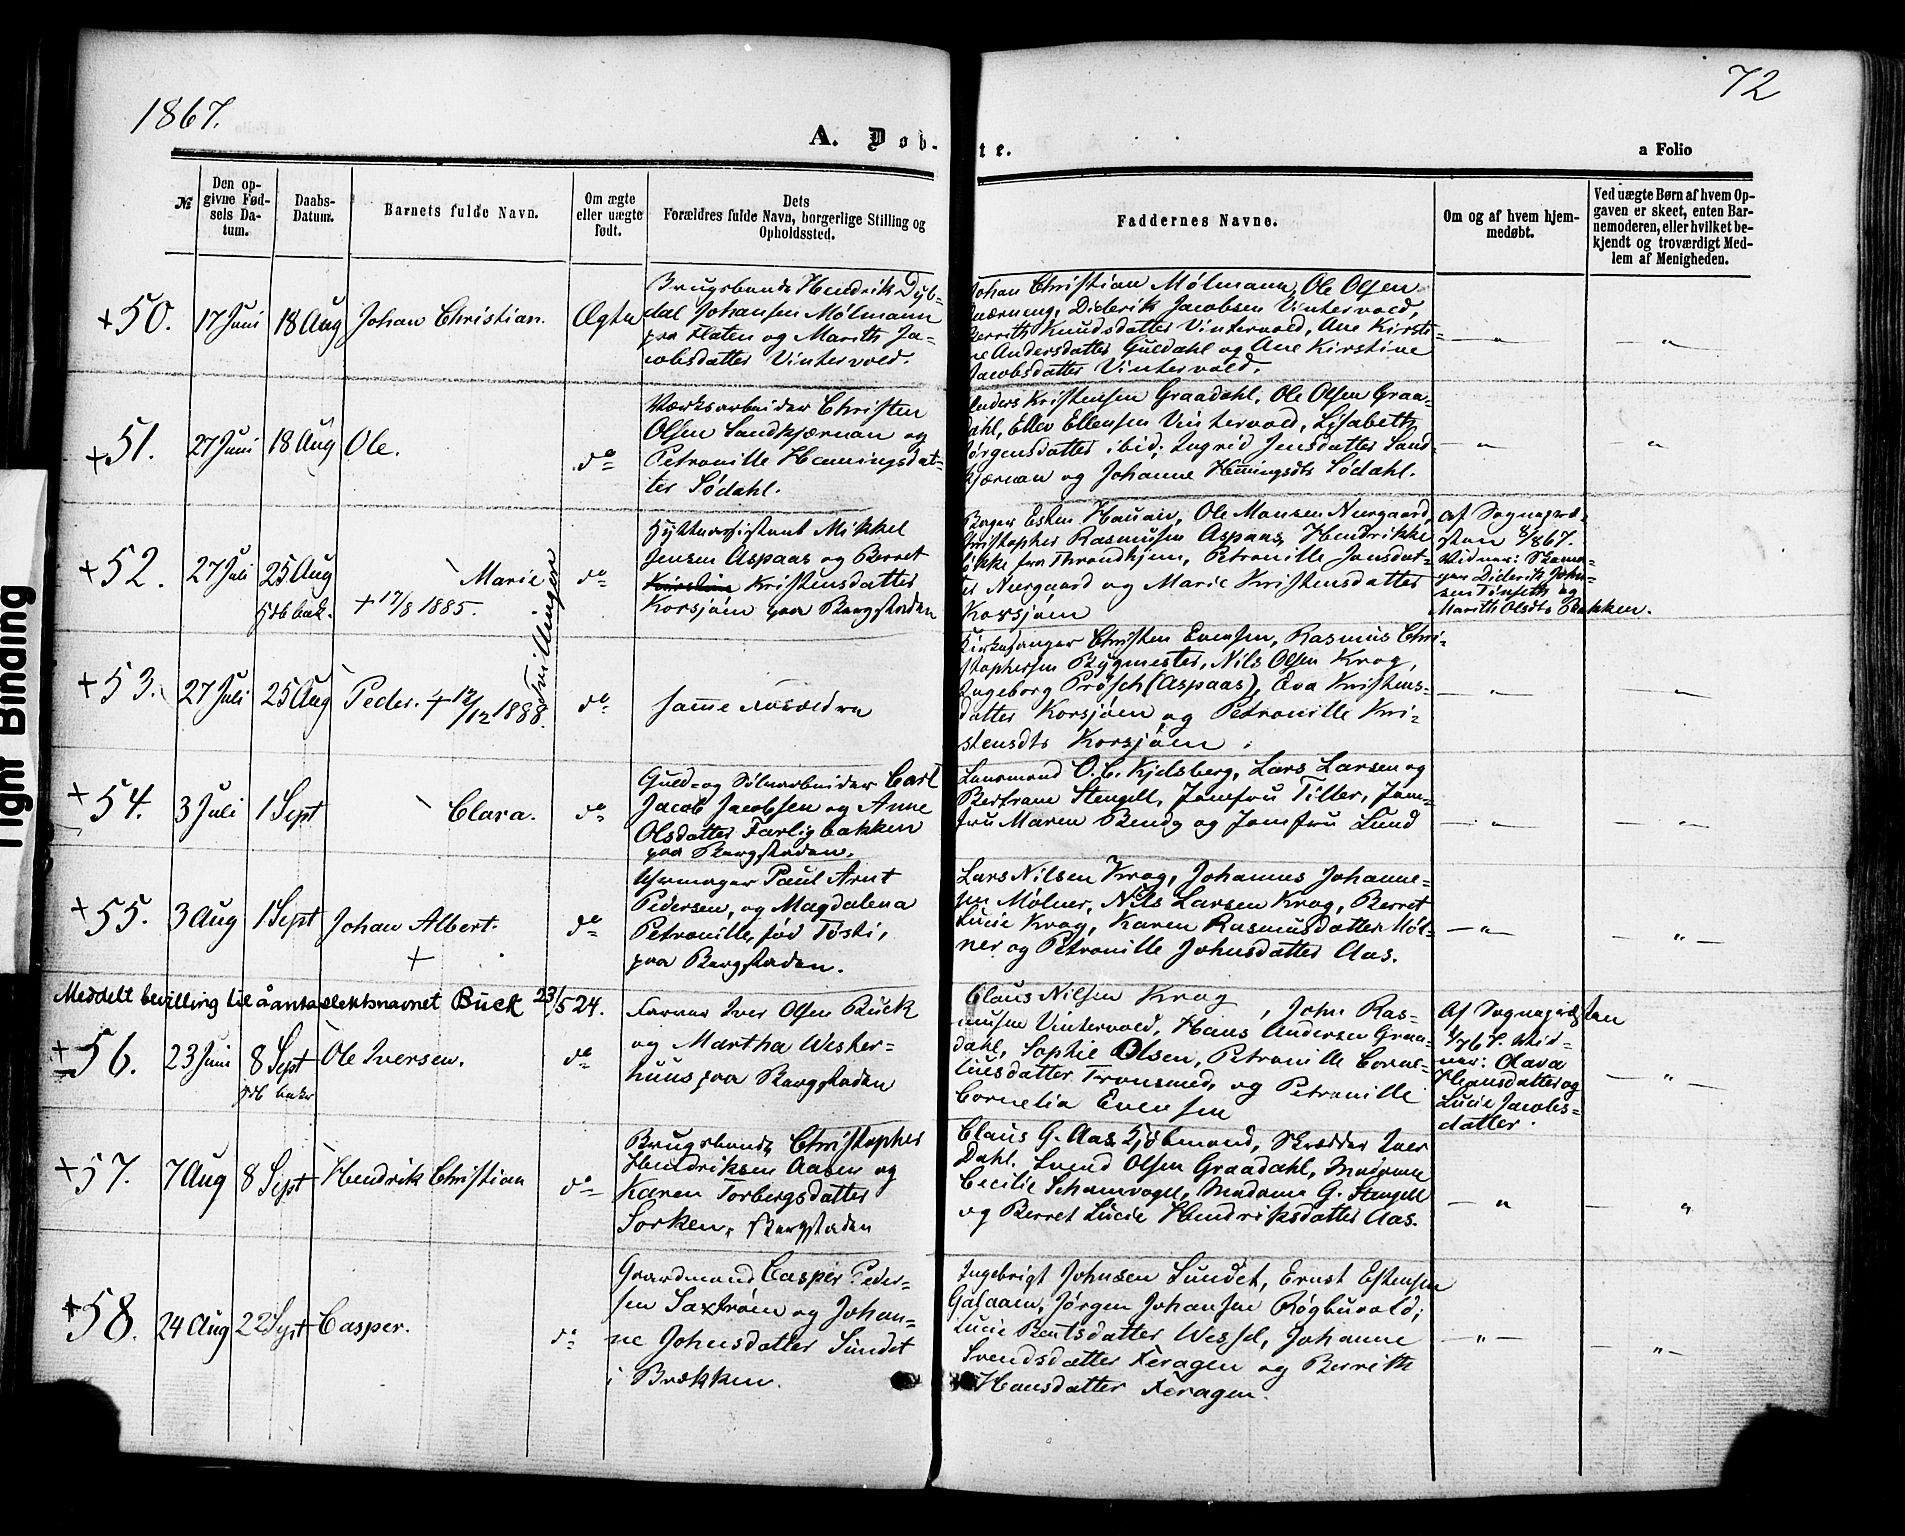 1867.
72
A. Døb-
te.
a Folio
№
Den op-
givne Fød-
sels Da-
tum.
Daabs-
Datum.
Barnets fulde Navn.
Om ægte
eller uægte
født.
Dets
Forældres fulde Navn, borgerlige Stilling og
Opholdssted.
Faddernes Navne.
Om og af hvem hjem-
medøbt.
Ved uægte Børn af hvem Op-
gaven er skeet, enten Bar-
nemoderen, eller hvilket be-
kjendt og troværdigt Med-
lem af Menigheden.
+50. 17 Juni 18 Aug Johan Christian. Ægte
Hendrik Dyb-
dal Johansen Mølmann
paa Flaten og Marith Ja-
cobsdatter Vintervold.
Johan Christian Mølmann, Ole Olsen
Diderik Jacobsen Vintervold,
Berrith Knudsdatter Vintervold, Ane Kirsti-
ne Andersdatter Guldahl og Ane Kirstine
Jacobsdatter Vintervold.
+51. 27 Juni 18 Aug Ole. do
Værksarbeider Christen
Olsen Sandkjærnan og
Petronille Hemingsdat-
ter Södahl.
Anders Kristensen Graadahl, Ole Olsen Graa-
dahl, Ellev Ellensen Vintervold, Lisabeth
Jörgensdatter ibid; Ingrid Jensdatter Sand-
kjærnan og Johanne Hemingsdt Södahl.
+52. 27 Juli 25 Aug Marie do
+ 17/8 1885.
Tvillinger
Hytteassistent Mikkel
Jensen Aspaas og Berret
Kristensdatter
Korsjøen paa Bergstaden
Ole Monsen Neergaard,
Christopher Rasmusen Aspaas, Hendrikke
fra Throndhjem, Petronille Jonsdat-
ter Neergaard og Marie Kristensdatter
Korsjøen
Af Sognepræ-
sten 8/8 67.
Vidner:
Diderik John-
sen Tönseth og
Marith Olsdt Bakken.
+53. 27 Juli 25 Aug Peder. + 12/12 1888. do
samme Forældre
Kirkesanger Christen Evensen, Rasmus Chri-
stophersen Bygmester, Nils Olsen Krog,
Ingeborg Prösch (Aspaas), Eva Kristens-
datter Korsjøen og Petronille Kri-
stensdt Korsjøen.
+54. 3 Juli 1 Sept Clara. do
Guld- og Sölvarbeider Carl
Jacob Jacobsen og Anne
Olsdatter Farligbakken
paa Bergstaden.
Lensmand O. C. Kjelsberg, Lars Larsen og
Bertram Stengell, Jomfru Tiller, Jom-
fru Maren Bendz og Jomfru Lund
+55. 3 Aug 1 Sept Johan Albert. do
+
Uhrmager Paul Arnt
Pedersen, og Magdalena
Petronille, föd Tösti,
paa Bergstaden.
Lars Nilsen Krog, Johannes Johanne-
sen Mölner, Nils Larsen Krog, Berret
Lucie Krog, Karen Rasmusdatter Möl-
ner og Petronille Johnsdatter Aas.
Meddelt bevilling til å anta slektsnavnet Buck 23/5 24.
+56. 23 Juni 8 Sept Ole Iversen. do
Farver Iver Olsen Buck
og Martha Wester-
huus paa Bergstaden
Claus Nilsen Krog, John Ras-
musen Vintervold, Hans Andersen Graa-
dahl, Sophie Olsen, Petronille Corne-
liusdatter Tronsmed, og Petronille
Cornelia Evensen
Af Sognepræsten
Vid-
ner: Olava
Hansdatter og
Lucie Jacobs-
datter.
+57. 7 Aug 8 Sept Hendrik Christian do
Brugsbonde Christopher
Hendriksen Aasen og
Karen Torbergsdatter
Sorken, Bergstaden
Claus G. Aas Kjöbmand, Skrædder Iver
Dahl. Svend Olsen Graadahl, Madame
Cecilie Schanvogel, Madame G. Stengell
og Berret Lucie Hendriksdatter Aas.
+58. 24 Aug 22 Sept Casper. do
Gaardmand Casper Peder-
sen Saxtrøm og Johan-
ne Johnsdatter Sundet
i Brækken.
Ingebrigt Johnsen Sundet, Ernst Estensen
Galaaen, Jörgen Johansen
Lucie Bentsdatter Wessel, Johanne
Svendsdatter Feragen og Berrith
Hansdatter Feragen.
Tight Binding